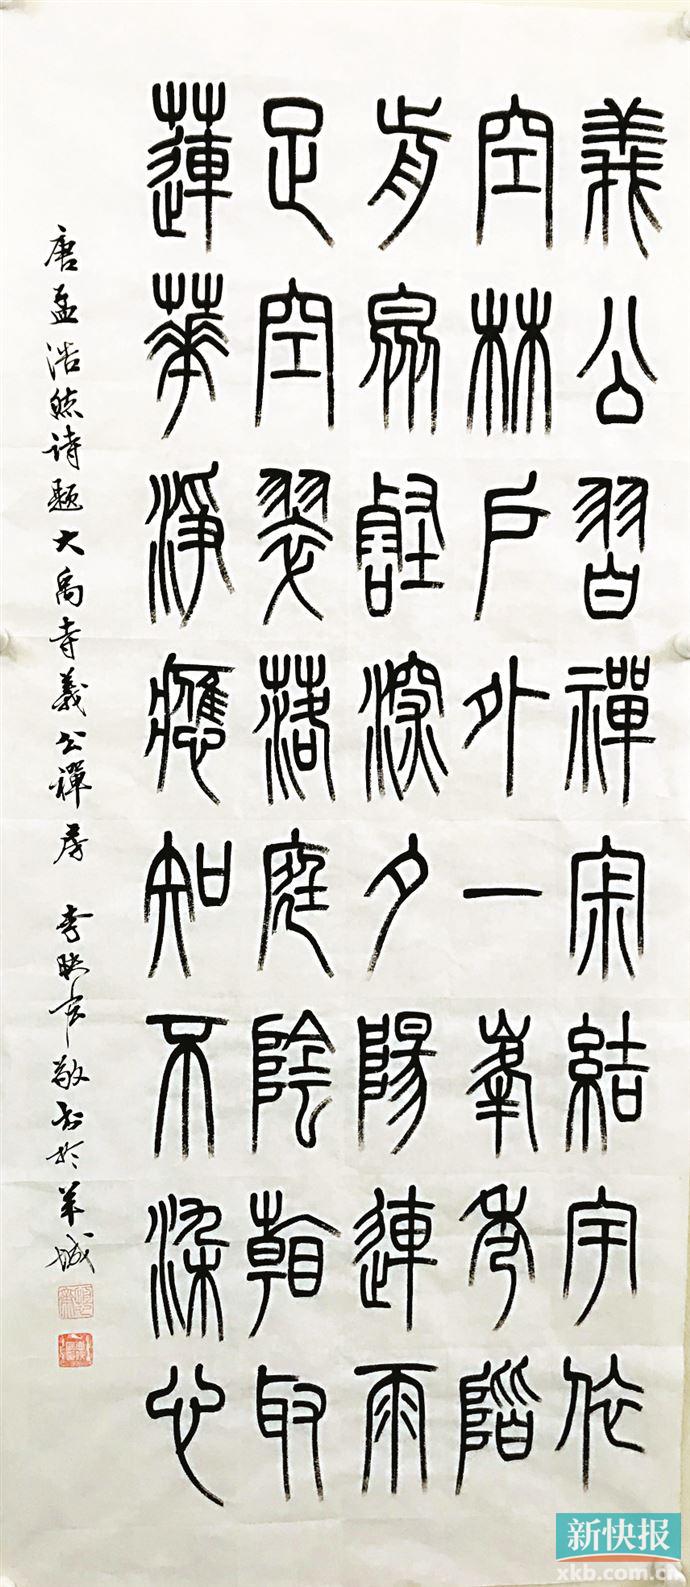 義公習禪寂結宇依
空林戶外一峯秀階
前眾壑深夕陽連雨
足空翠落庭陰看取
蓮華淨應知不染心
唐孟浩然诗题大禹寺義公禪房 李映京敬书於羊城
新快报
xkb.com.cn